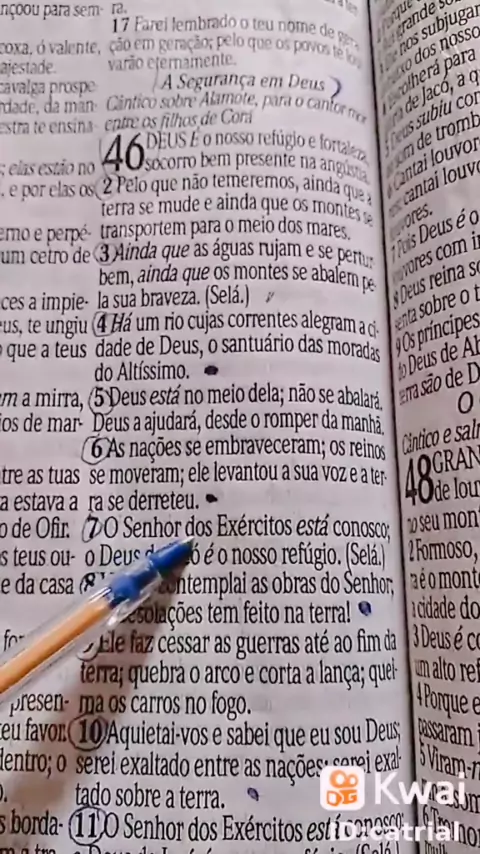 nçoou para sem-
coxa, ó valente,
ajestade.
cavalga prospe
rdade, da man
estra te ensina
; elas estão no
, e por elas os
erno e perpé-
um cetro de
ces a impie-
eus, te ungiu
o que a teus
em a mirra,
ios de mar-
tre as tuas
a estava a
o de Ofir.
s teus ou-
e da casa
presen-
teu favor.
dentro; o
s borda-
ra.
17 Farei lembrado o teu nome de
ção em geração; pelo que os povos te
varão eternamente.
A Segurança em Deus
Cântico sobre Alamote, para o cantor-mor
entre os filhos de Corá
46 DEUS É o nosso refúgio e fortaleza,
socorro bem presente na angústia.
2 Pelo que não temeremos, ainda que a
terra se mude e ainda que os montes se
transportem para o meio dos mares.
3 Ainda que as águas rujam e se pertur-
bem, ainda que os montes se abalem pe-
la sua braveza. (Selá.)
4 Há um rio cujas correntes alegram a ci-
dade de Deus, o santuário das moradas
do Altíssimo.
5 Deus está no meio dela; não se abalará.
Deus a ajudará, desde o romper da manhã.
6 As nações se embraveceram; os reinos
se moveram; ele levantou a sua voz e a ter-
ra se derreteu.
7 O Senhor dos Exércitos está conosco;
o Deus é o nosso refúgio. (Selá.)
8 contemplai as obras do Senhor;
desolações tem feito na terra!
Ele faz cessar as guerras até ao fim da
terra; quebra o arco e corta a lança; quei-
ma os carros no fogo.
10 Aquietai-vos e sabei que eu sou Deus;
serei exaltado entre as nações; serei exal-
tado sobre a terra.
11 O Senhor dos Exércitos está conosco;
grande so
nos subjugar
dos nosso
Escolherá para
de Jacó, a q
Deus subiu com
som de tromb
Cantai louvor
cantai louvo
vores.
7 Pois Deus é o
vores com in
8 Deus reina s
senta sobre o t
9 Os príncipes
Deus de Ab
terra são de D
O
Cântico e salm
48 GRAN
de lou
no seu mon
2 Formoso,
ra é o monte
a cidade do
3 Deus é c
um alto ref
4 Porque e
passaram
5 Viram-n
Kwai
iD:catrial